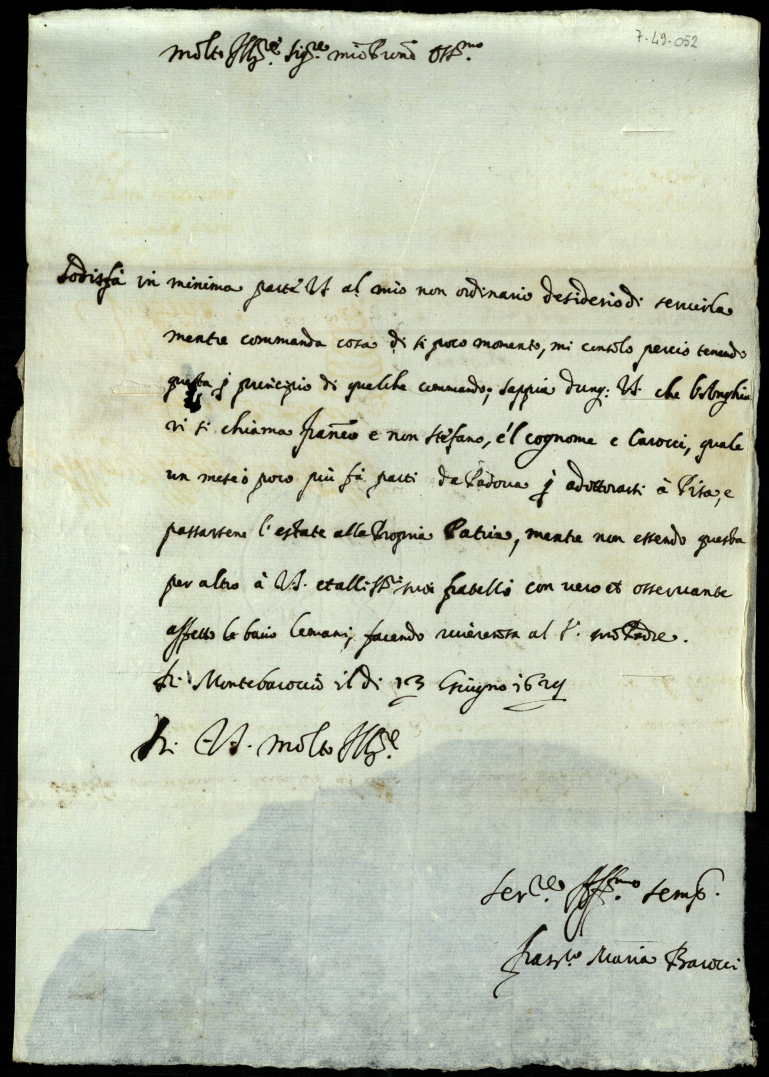 7.49.052
Molto Ill.re Sig.re mio Prone Oss.mo
Sodisfà in minima parte VS al mio non ordinario desiderio di servirla
mentre commanda cosa di si poco momento, mi consolo perciò tenendo
questa p principio di qualche commando; sappia dunq: VS. che
si chiama Franco e non Stefano, é'l cognome e Carocci, quale
un mese ò poco più fà partì da Padova p addottorarsi à Pisa, e
passarsene l'estate alla Propria Patria, mentre non essendo questa
per altro à VS. et alli suoi fratelli con vero et osservante
affetto le bacio le mani, facendo riverenza al S. suo Padre.
Di Montebaroccio il di 13 Giugno 1629
Di VS. Molto Ill.re
Ser.re Aff.mo semp.
Maria Barocci